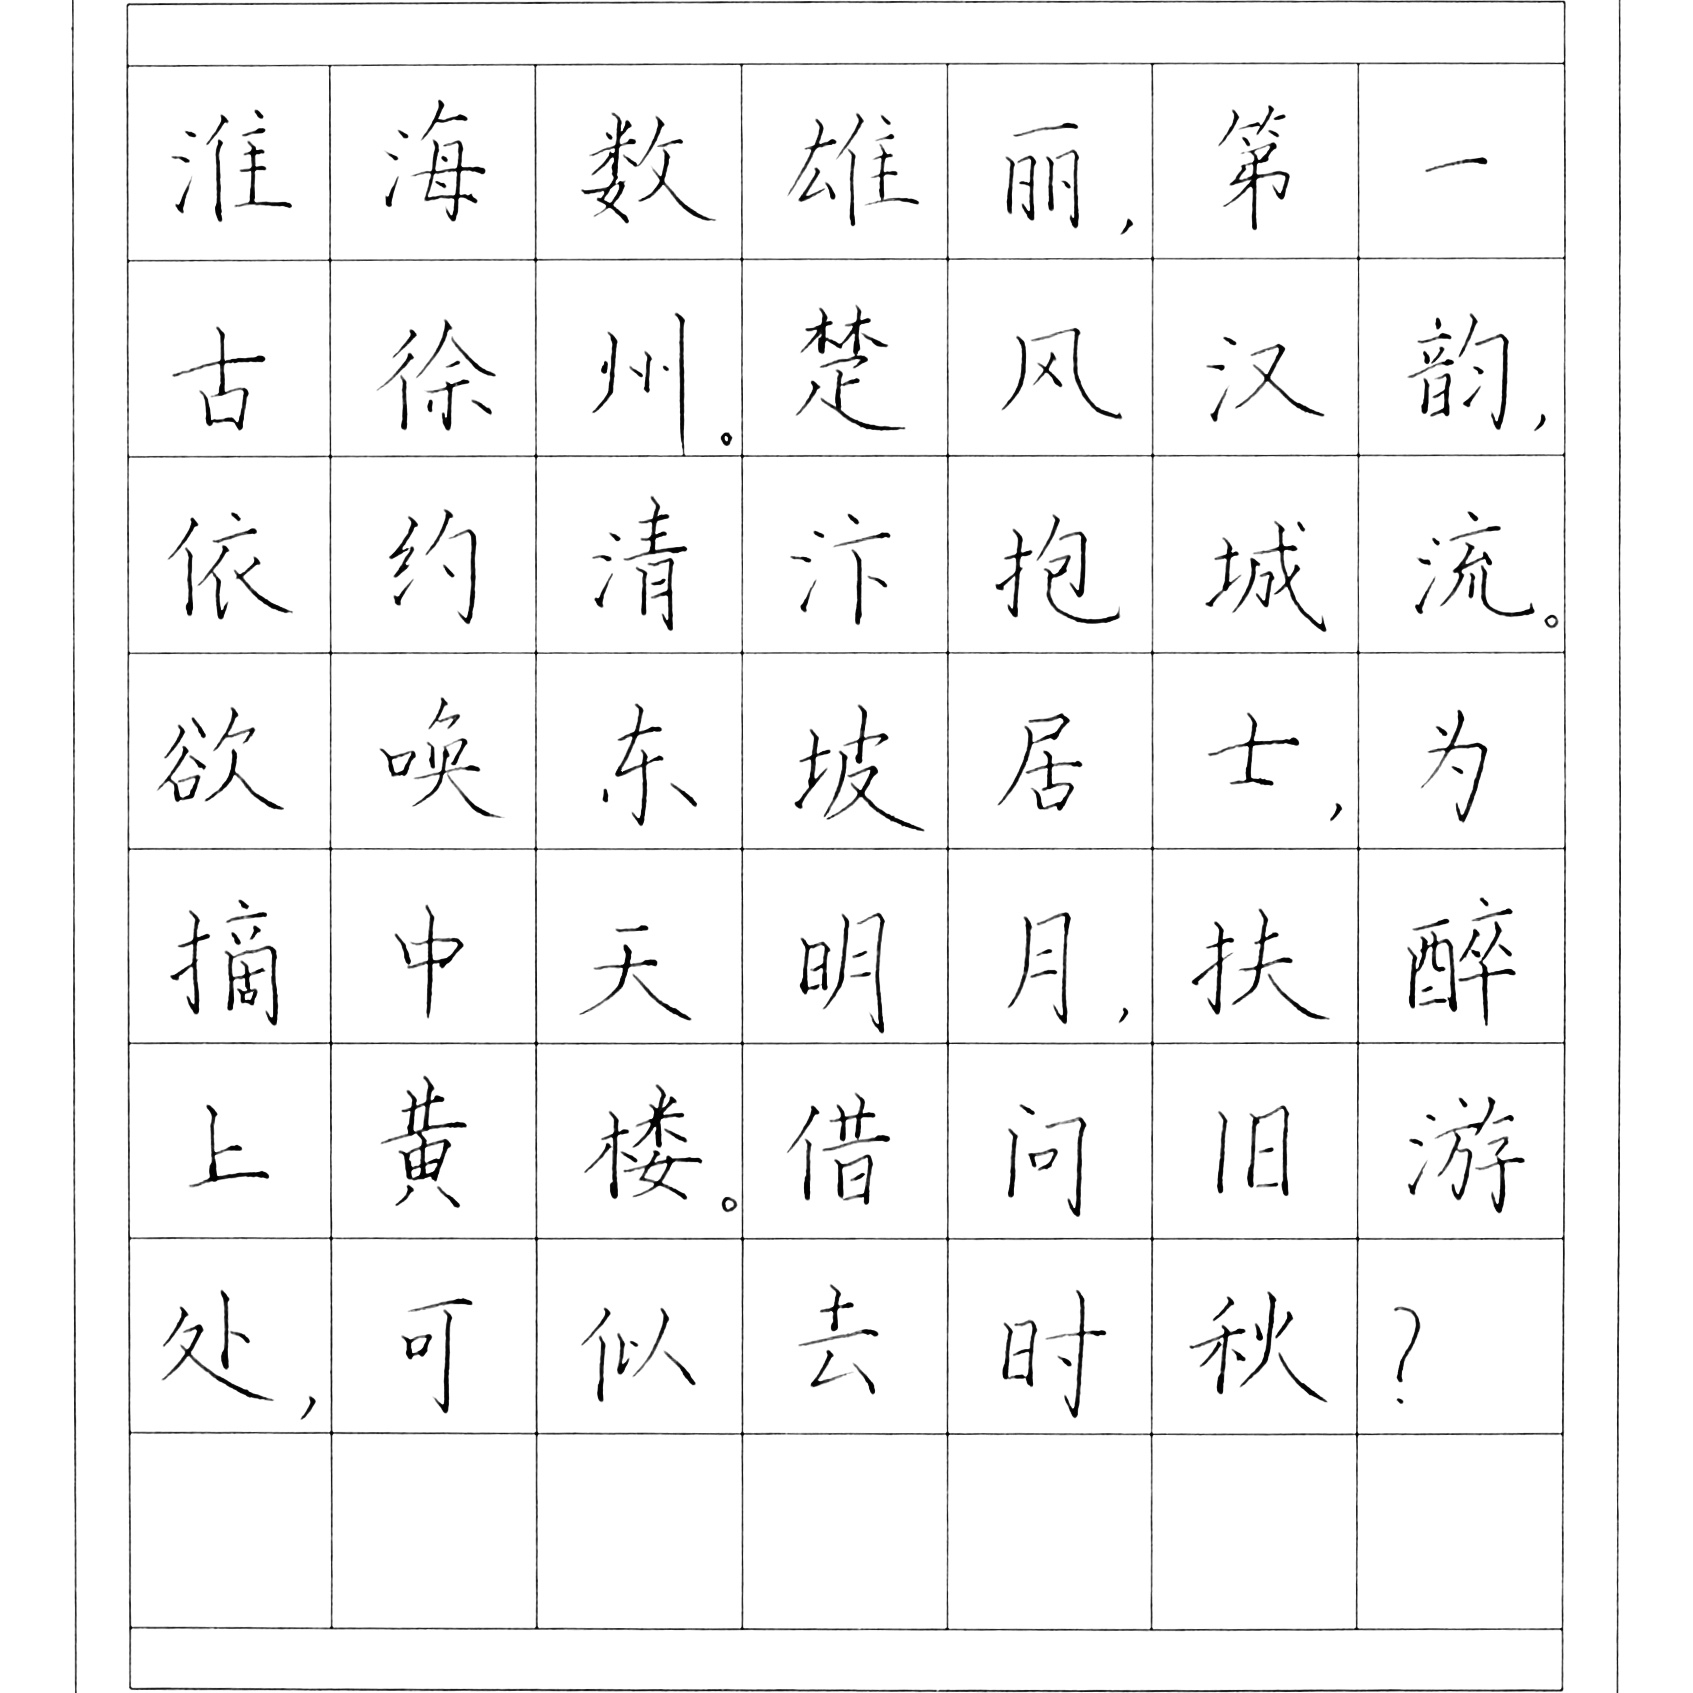 淮海数雄丽,第一
古徐州。楚风汉韵,
依约清汴抱城流。
欲唤东坡居士,为
摘中天明月,扶醉
上黄楼。借问旧游
处,可似去时秋?